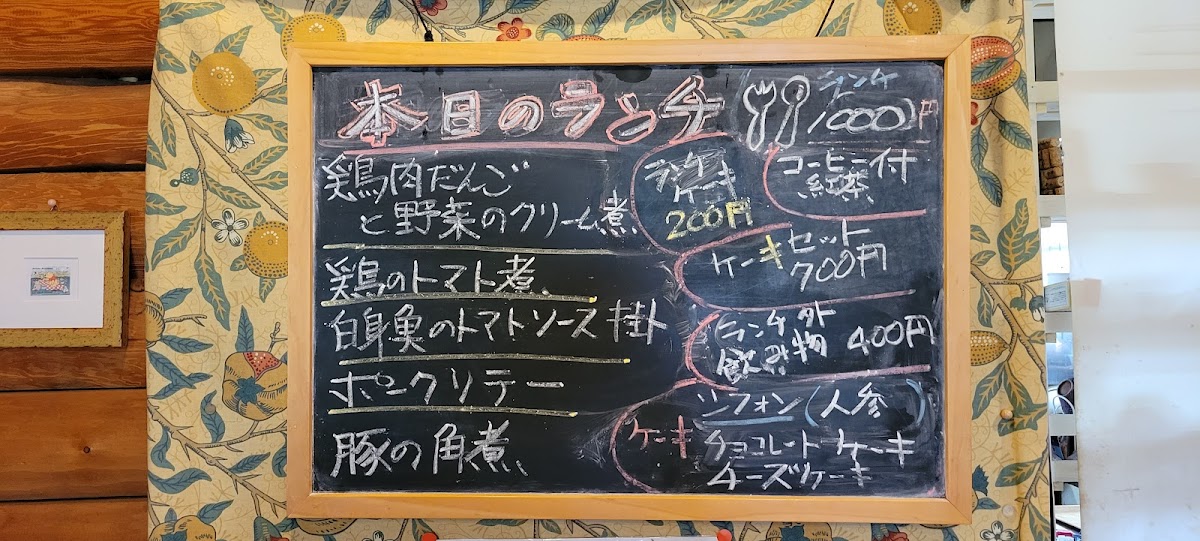 本日のランチ
ランチ
1000円
コーヒー付
紅茶
鶏肉だんご
と野菜のクリーム煮
鶏のトマト煮
白身魚のトマトソース掛
ポークソテー
豚の角煮
ランチ
ケーキ
200円
ケーキセット
700円
ランチ外
飲み物 400円
ケーキ
シフォン(人参)
チョコレートケーキ
チーズケーキ